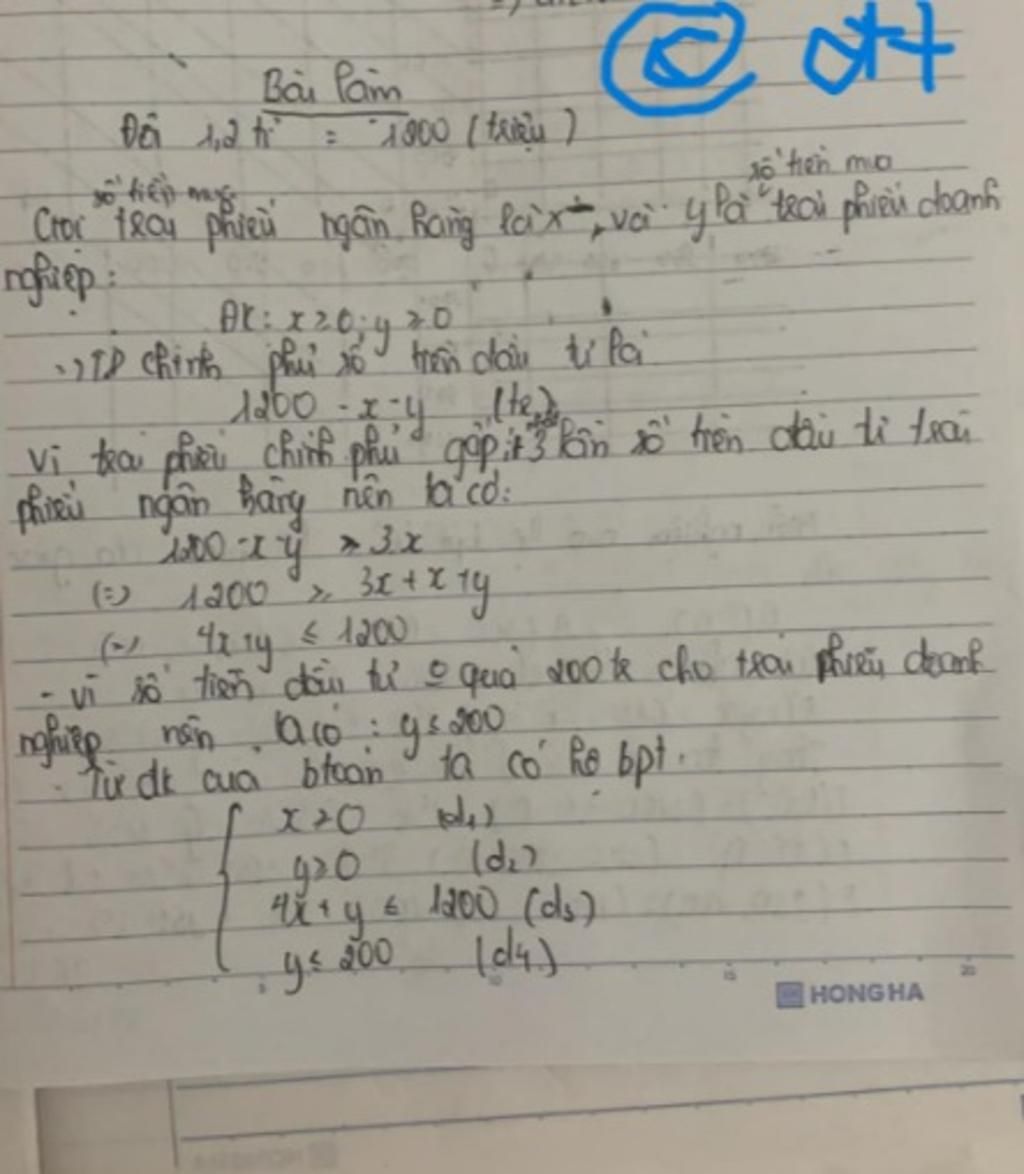 Bài làm
Đổi 1,2 tỉ = 1200 (triệu)
số tiền mua số tiền mua
Gọi trái phiếu ngân hàng là x, và y là trái phiếu doanh
nghiệp:
ĐK: x ≥ 0; y ≥ 0
TP chính phủ số tiền đầu tư là
1200 - x - y (tr)
Vì trái phiếu chính phủ gấp ít 3 lần số tiền đầu tư trái
phiếu ngân hàng nên ta có:
1200 - x - y ≥ 3x
(=) 1200 ≥ 3x + x + y
(=) 4x + y ≤ 1200
- Vì số tiền đầu tư quá 200tr cho trái phiếu doanh
nghiệp nên ta có : y ≤ 200
- Từ đk của btoán ta có hệ bpt.
x ≥ 0 (d1)
y ≥ 0 (d2)
4x + y ≤ 1200 (d3)
y ≤ 200 (d4)
5 10 15 20
HONG HA